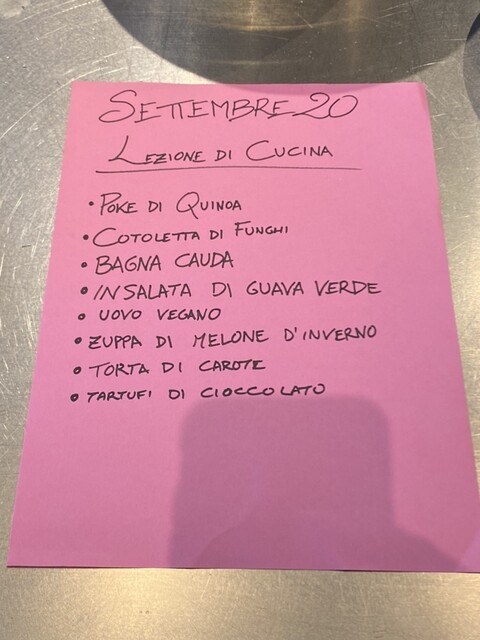 SETTEMBRE 20
LEZIONE DI CUCINA
• POKE DI QUINOA
• COTOLETTA DI FUNGHI
• BAGNA CAUDA
• INSALATA DI GUAVA VERDE
• UOVO VEGANO
• ZUPPA DI MELONE D'INVERNO
• TORTA DI CAROTE
• TARTUFI DI CIOCCOLATO